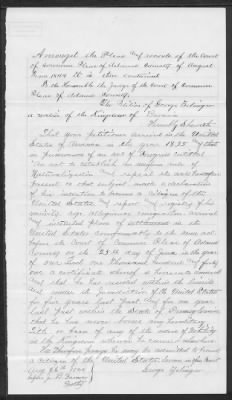 Amongst the Pleas and records of the Court
of Common Pleas of Adams County of August
Term 1844 it is thus contained
To the Honorable the Judges of the Court of Common
Pleas of Adams County.
The Petition of George
a native of the Kingdom of Bavaria
Humbly Sheweth
That your petitioner arrived in the United
States of America in the year 1835 and that
in pursuance of an act of Congress entitled
"An act to establish an uniform rule of
Naturalization and repeal the acts heretofore
passed on that subject made a declaration
of his intention to become a citizen of the
United States and report and registry of his
nativity age allegiance emigration arrival
and intended place of settlement in the
United States conformably to the same act
before the Court of Common Pleas of Adams
County on the 25th day of in the year
of our Lord one Thousand hundred and forty
one a certificate whereof is hereunto annexed
and that he has resided within the limits
and under the jurisdiction of the United States
for five years last past and for one year
last past within the State of Pennsylvania
that he has never borne any hereditary
title or been of any of the orders of Nobility
in the Kingdom whence he came
He Therefore prays he may be admitted to become
a citizen of the United States
Aug 26th 1844 George
before J. B.